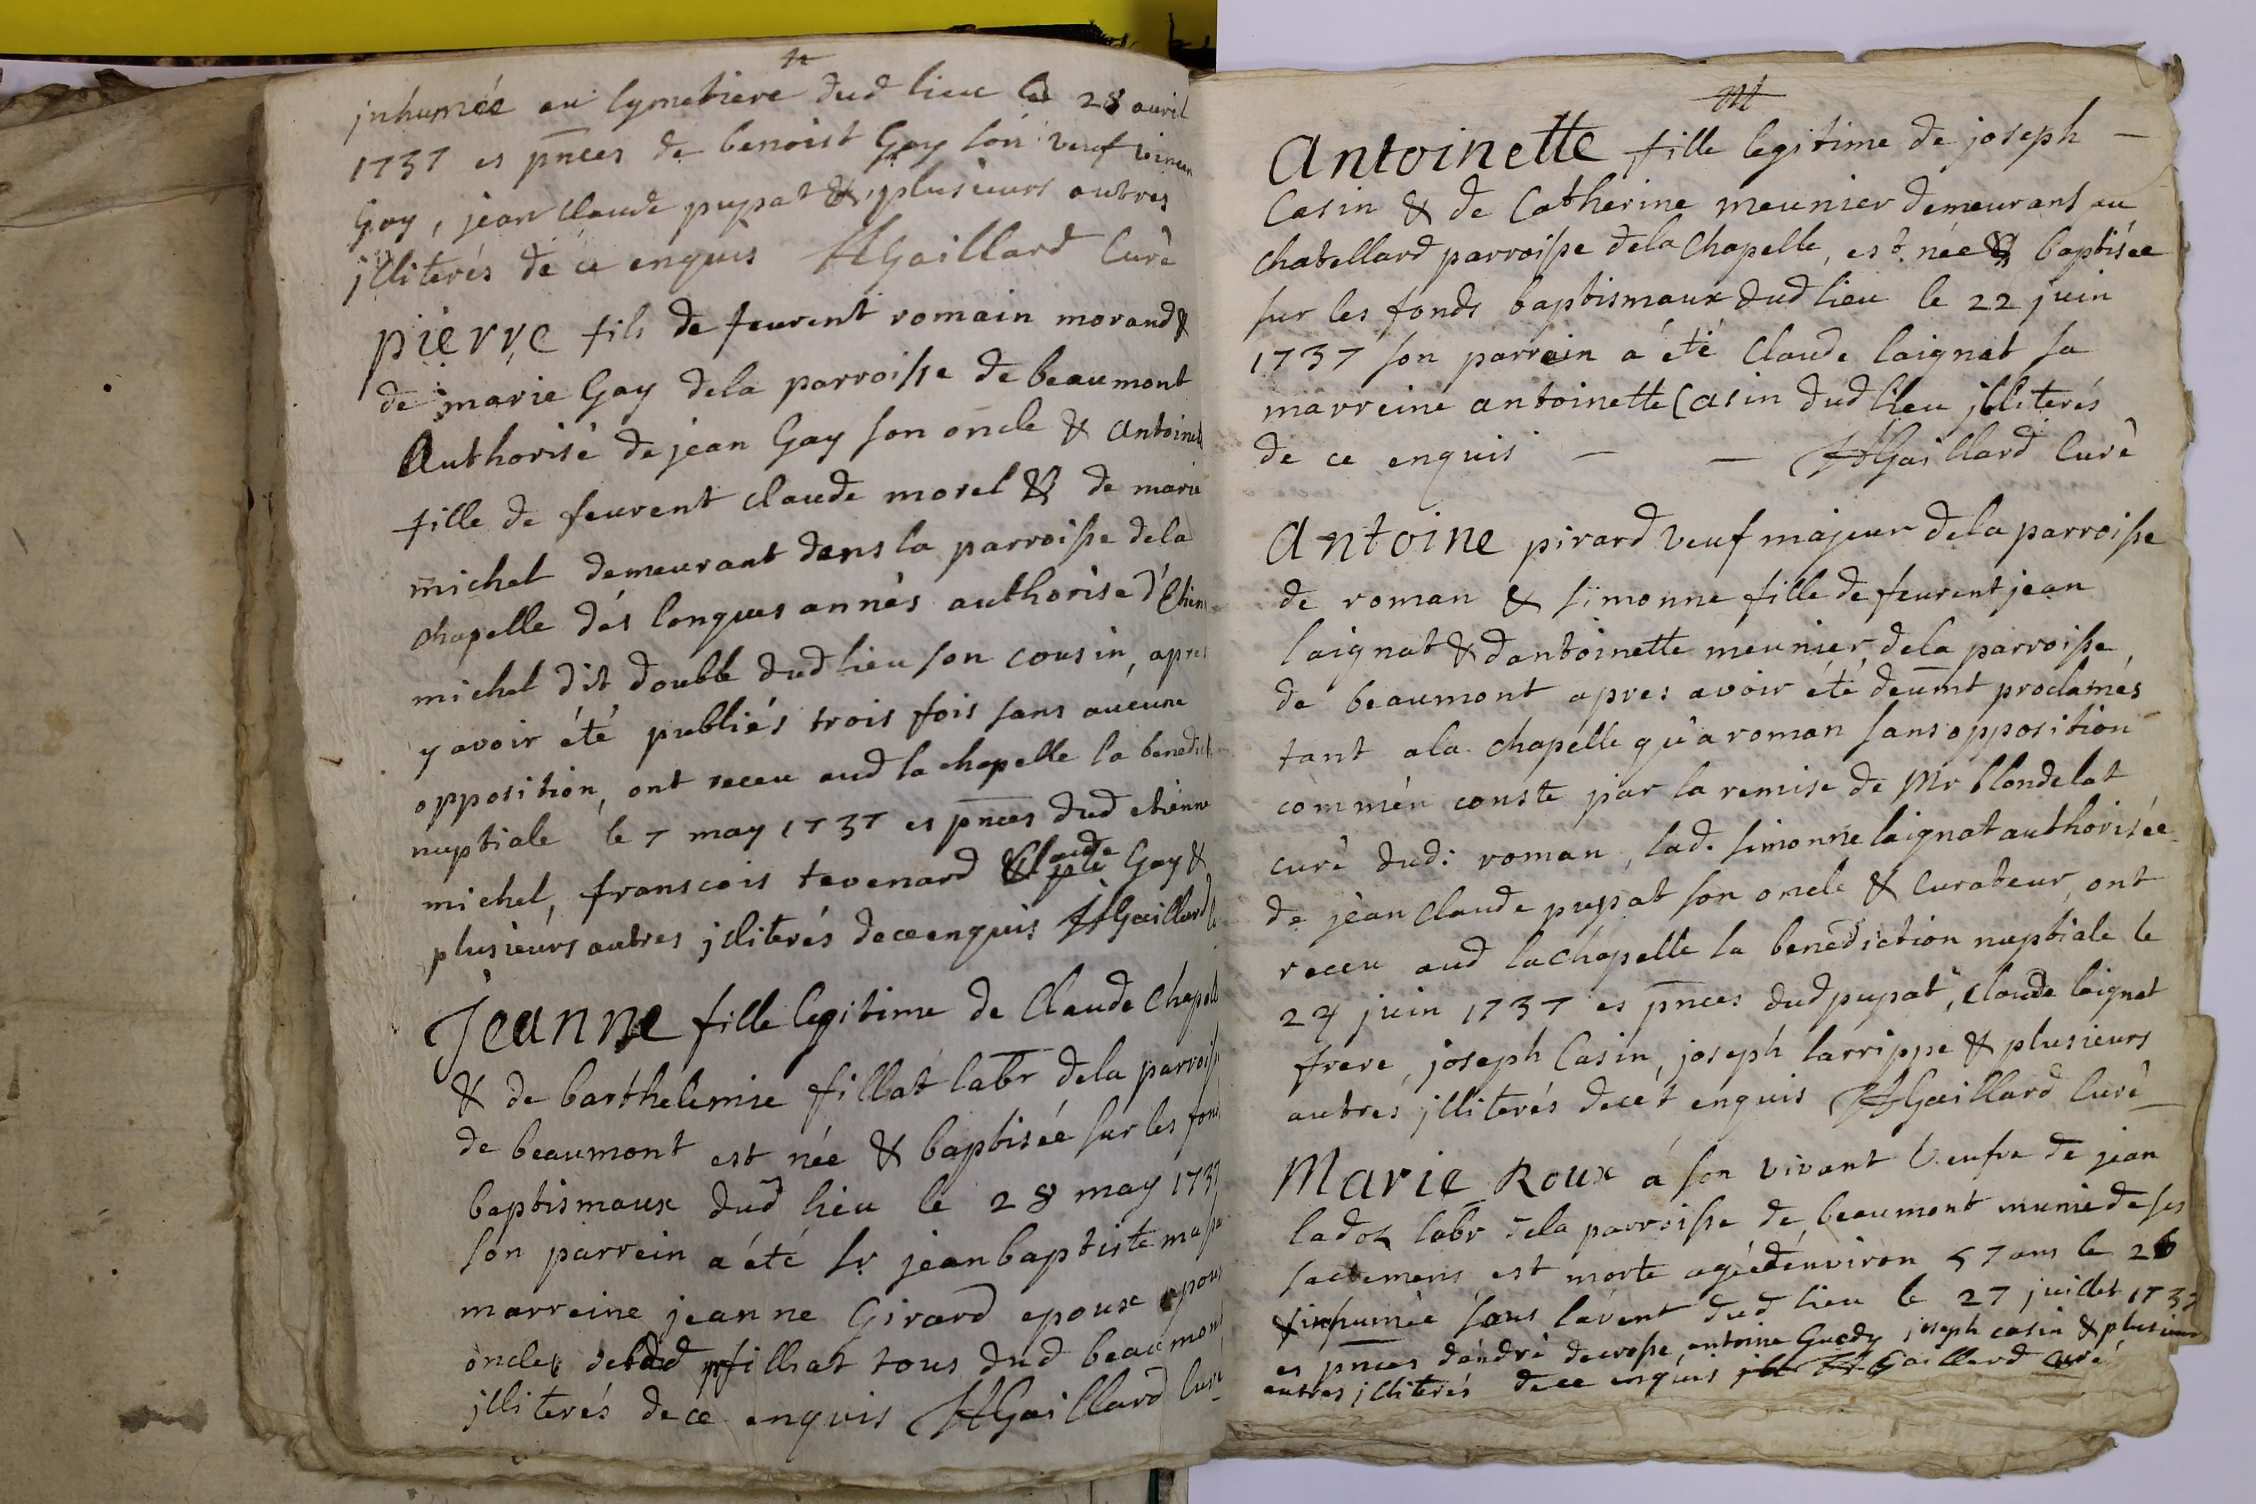 inhumée au Cymetiere dud lieu le 28 avril
1737 es pnces de benoist Gay son veuf vincen
Gay, jean Claude pupat & plusieurs autres
jlliterés de ce enquis HGaillard Curé
pierre fils de feurent romain morand &
de marie Gay dela parroisse de beaumont
Authorisé de jean Gay son oncle & Antoinet
fille de feurent claude morel & de marie
michel demeurant dans la parroisse dela
chapelle dés longues annés authorise d'Etien
michel dit double dud lieu son cousin, apres
y avoir été publiés trois fois sans aucune
opposition, ont receu aud la chapelle la benedict
nuptiale le 7 may 1737 es pnces dud etienne
michel, franscois tevenard & Claude Gay &
plusieurs autres jlliterés de ce enquis HGaillard C
Jeanne fille legitime de Claude Chapel
& de barthelemie fillat labr dela parroiss
de beaumont est née & baptisée sur les fond
baptismaux dud lieu le 28 may 1737
son parrein a été sr jean baptiste
marreine jeanne Girard epouse
oncle fillat tous dud beaumont
jlliterés de ce enquis HGaillard Curé
Antoinette fille legitime de joseph –
Casin & de Catherine meunier demeurans au
chatellard parroisse dela Chapelle, est née & baptisée
sur les fonds baptismaux dud lieu le 22 juin
1737 son parrein a été Claude laignat sa
marreine antoinette Casin dud lieu jlliterés
de ce enquis – – HGaillard Curé
Antoine pirard veuf majeur dela parroisse
de roman & simonne fille de feurent jean
laignat & dantoinette meunier, dela parroisse
de beaumont apres avoir été deumt proclamés
tant a la chapelle qu'a roman sans opposition
comm'en conste par la remise de Mr blondelat
curé dud: roman, lad. simonne laignat authorisée
de jean claude pupat son oncle & Curateur, ont
receu aud lachapelle la benediction nuptiale le
24 juin 1737 es pnces dud pupat, claude laignat
frere, joseph Casin, joseph larrippe & plusieurs
autres jlliterés de cet enquis HGaillard Curé
Marie Roux a son vivant Veufve de jean
ladoz labr dela parroisse de beaumont munie de ses
sacremens est morte agée d'environ 57 ans le 26
& inhumée sous lavent dud lieu le 27 juillet 1737
es pnces d'andré antoine Guedy joseph casin & plusieurs
autres jlliterés de ce enquis HGaillard Curé